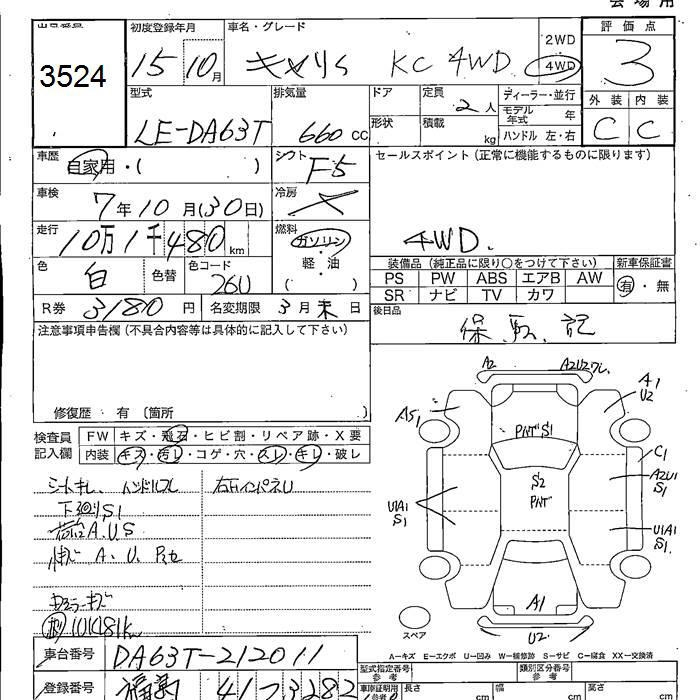 会場用
初度登録年月 車名・グレード 評価点
3524 15 10月 キャリィ KC 4WD 2WD 4WD 3
型式 排気量 ドア 定員 2人 ディーラー・並行 外装 内装
モデル年式 年
LE-DA63T 660 CC 形状 積載 kg ハンドル 左・右 C C
車歴 自家用・( ) シフト F5 セールスポイント(正常に機能するものに限ります)
車検 7年10月(30日) 冷房
走行 10万1千480km 燃料 ガソリン 4WD.
軽・油
色 白 色替 色コード 26U ( )
装備品(純正品に限り○をつけて下さい) 新車保証書
PS PW ABS エアB AW 有・無
SR ナビ TV カワ
R券 3180円 名変期限 3月末日 後日品
保.取.記
注意事項申告欄(不具合内容等は具体的に記入して下さい)
修復歴 有 (箇所 )
検査員記入欄 FW キズ・飛石・ヒビ割・リペア跡・X要
内装 キズ・汚レ・コゲ・穴・スレ・キレ・破レ
シートキレ ハンドルスレ 右下インパネU
下回りS1
荷台A.U.S
A.U.
101481k
A2 A2U2ワレ
A1
U2
AS1
PNT S1
C1
S2
PNT
A2U1
S1
U1A1
S1
U1A1
S1
A1
U2
スペア
A-キズ E-エクボ U-凹み W-補修跡 S-サビ C-腐食 XX-交換済
車台番号 DA63T-212011 型式指定番号 参考 類別区分番号 参考
登録番号 福島 41 つ 3282 車庫証明用(参考) 長さ cm 幅 cm 高さ cm